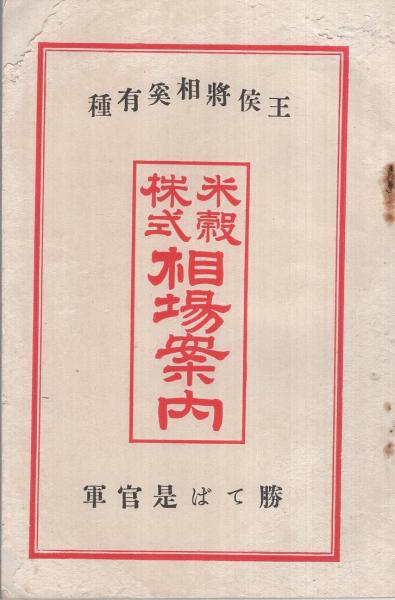 王侯將相奚有種
米穀
株式
相場案内
勝てば是官軍